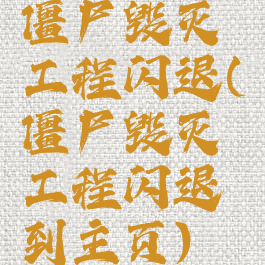 僵尸毁灭
工程闪退(
僵尸毁灭
工程闪退
到主页)